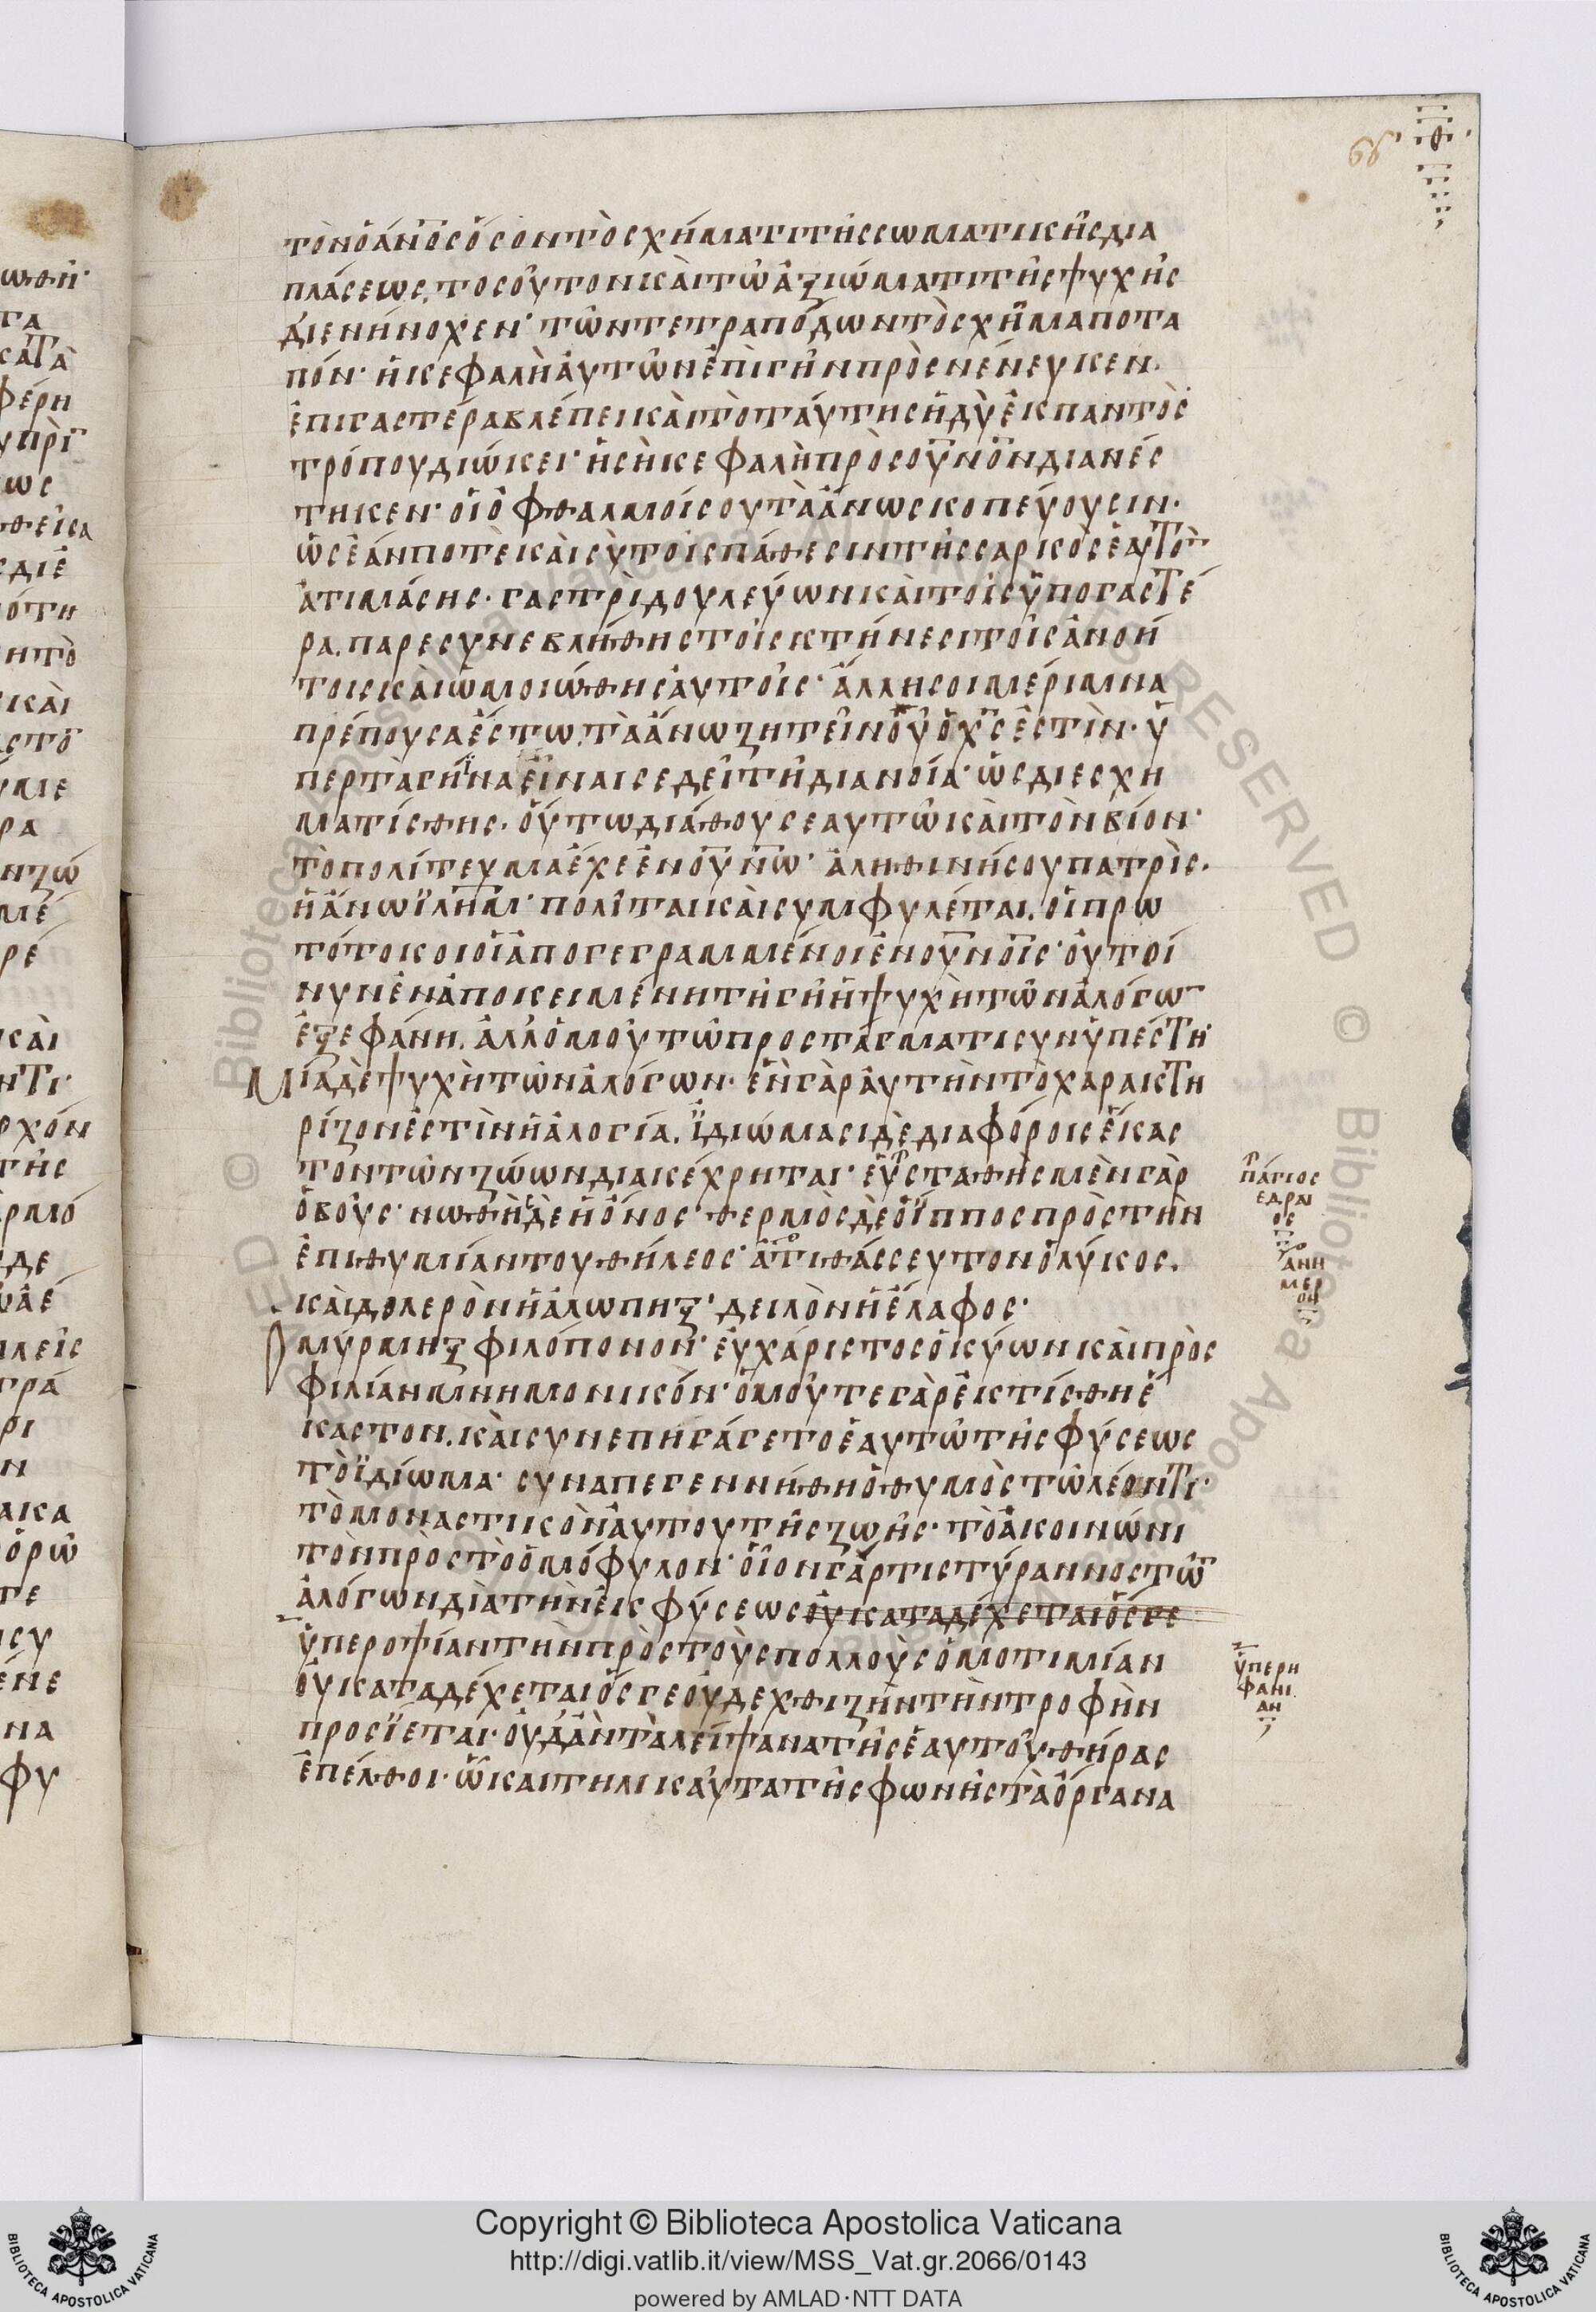 66
Θ
τὸν ὁ ἄν̅ο̅ς ὅσον τὸ σχήματι τῆς σωματικῆς δια
πλάσεως. τοσοῦτον καὶ τῶ ἀξιώματι τῆς ψυχῆς
διενήνοχεν· τῶν τετραπόδων τὸ σχῆμα ποτα
πόν· ἡ κεφαλὴ ἀυτῶν ἐπὶ γῆν προσνένευκεν.
ἐπι γαστέρα βλέπει καὶ τὸ ταύτης ἡδὺ ἐκ παντὸς
τρόπου διώκει· ἡ σὴ κεφαλὴ πρὸς ο̅υ̅ν̅ο̅ν διανέσ
τηκεν· οἱ ὀφθαλμοί σου τὰ ἄνω σκοπεύουσιν·
ὡς ἐάν ποτὲ καὶ σὺ τοῖς πάθεσιν τῆς σαρκὸς ἑαυτὸ̅
ἀτιμάσης· γαστρὶ δουλεύων καὶ τοῖς ὑπογαστέ
ρα. παρεσυνεβλήθης τοῖς κτήνεσι τοῖς ἀνοή
τοις καὶ ὡμοιώθης ἀυτοῖς· ἄλλη σοι μέριμνα
πρέπουσα ἔστω. τὰ ἄνω ζητεῖν ὁῦ ὁ χ̅ς ἐστὶν· ὑ
περ τὰ γήϊνα εἶναι σε δεῖ τῆ διανοία· ὡς διεσχη
ματίσθης· ὅυτω διάθου σεαυτῶ καὶ τὸν βίον·
τὸ πολίτευμα ἔχε ἐν ο̅υ̅ν̅ω· ἀληθινή σου πατρὶς.
ἡ ἄνω ϊ̅λ̅η̅μ· πολῖται καὶ συμφυλέται. οἱ πρω
τότοκοι οἱ ἀπογεγραμμένοι ἐν ο̅υ̅ν̅ο̅ῖς· ὁυτοί
νυν ἐναποκειμένη τῆ γῆ ἡ ψυχὴ τῶν ἀλόγω̅
ἐξεφάνη. ἀλλ ὁμοῦ τῶ προστάγματι συνϋπέστη
Μία δὲ ψυχὴ τῶν ἀλόγων· ἓν γὰρ ἀυτὴν τὸ χαρακτη
ρίζον ἐστὶν ἡ ἀλογία. ϊδιώμασι δὲ διαφόροις ἕκασ
τον τῶν ζώων διακέχρηται· ἐυσταθὴς μὲν γὰρ
ὁ βοῦς· νωθὴς δὲ ἡ ὄνος· θερμὸς δὲ ὁ ΐππος πρὸς τὴν
ἐπιθυμίαν του θήλεος· ἀτιθάσσευτον ὁ λύκος.
καὶ δολερὸν ἡ ἀλωπηξ· δειλὸν ἡ ἔλαφος·
Ὁ μύρμηξ φιλόπονον· ἐυχάριστος ὁ κύων καὶ πρὸς
φιλίαν μνημονικόν· ὁμοῦ τε γὰρ ἐκτίσθη ἕ
καστον. καὶ συνεπηγάγετο ἑαυτῶ τῆς φύσεως
τὸ ϊδίωμα· συναπεγεννήθη ὁ θυμὸς τῶ λέοντι·
τὸ μοναστικὸν ἀυτου τῆς ζωῆς· τὸ ἀκοινώνι
τον πρὸς τὸ ὁμόφυλον· οἷον γάρ τις τύραννος τῶ̅
ἀλόγων διὰ τὴν ἐκ φύσεως ὀυ καταδέχεται ὅς γε
ὑπεροψίαν τὴν πρὸς τοὺς πολλοὺς ὁμοτιμίαν
ὀυ καταδέχεται ὅς γε ὀυδε χθιζὴν τὴν τροφὴν
προσΐεται· ὀυδ ἂν τὰ λείψανα τῆς ἑαυτοῦ θήρας
ἐπέλθοι· ὧ καὶ τηλικαῦτα τῆς φωνῆς τὰ ὄργανα
πάγιος
εδραι
ος
ανη
μερ
ον
ὑπερη
φανι
αν
Copyright © Biblioteca Apostolica Vaticana
http://digi.vatlib.it/view/MSS_Vat.gr.2066/0143
powered by AMLAD·NTT DATA
BIBLIOTECA APOSTOLICA VATICANA
BIBLIOTECA APOSTOLICA VATICANA